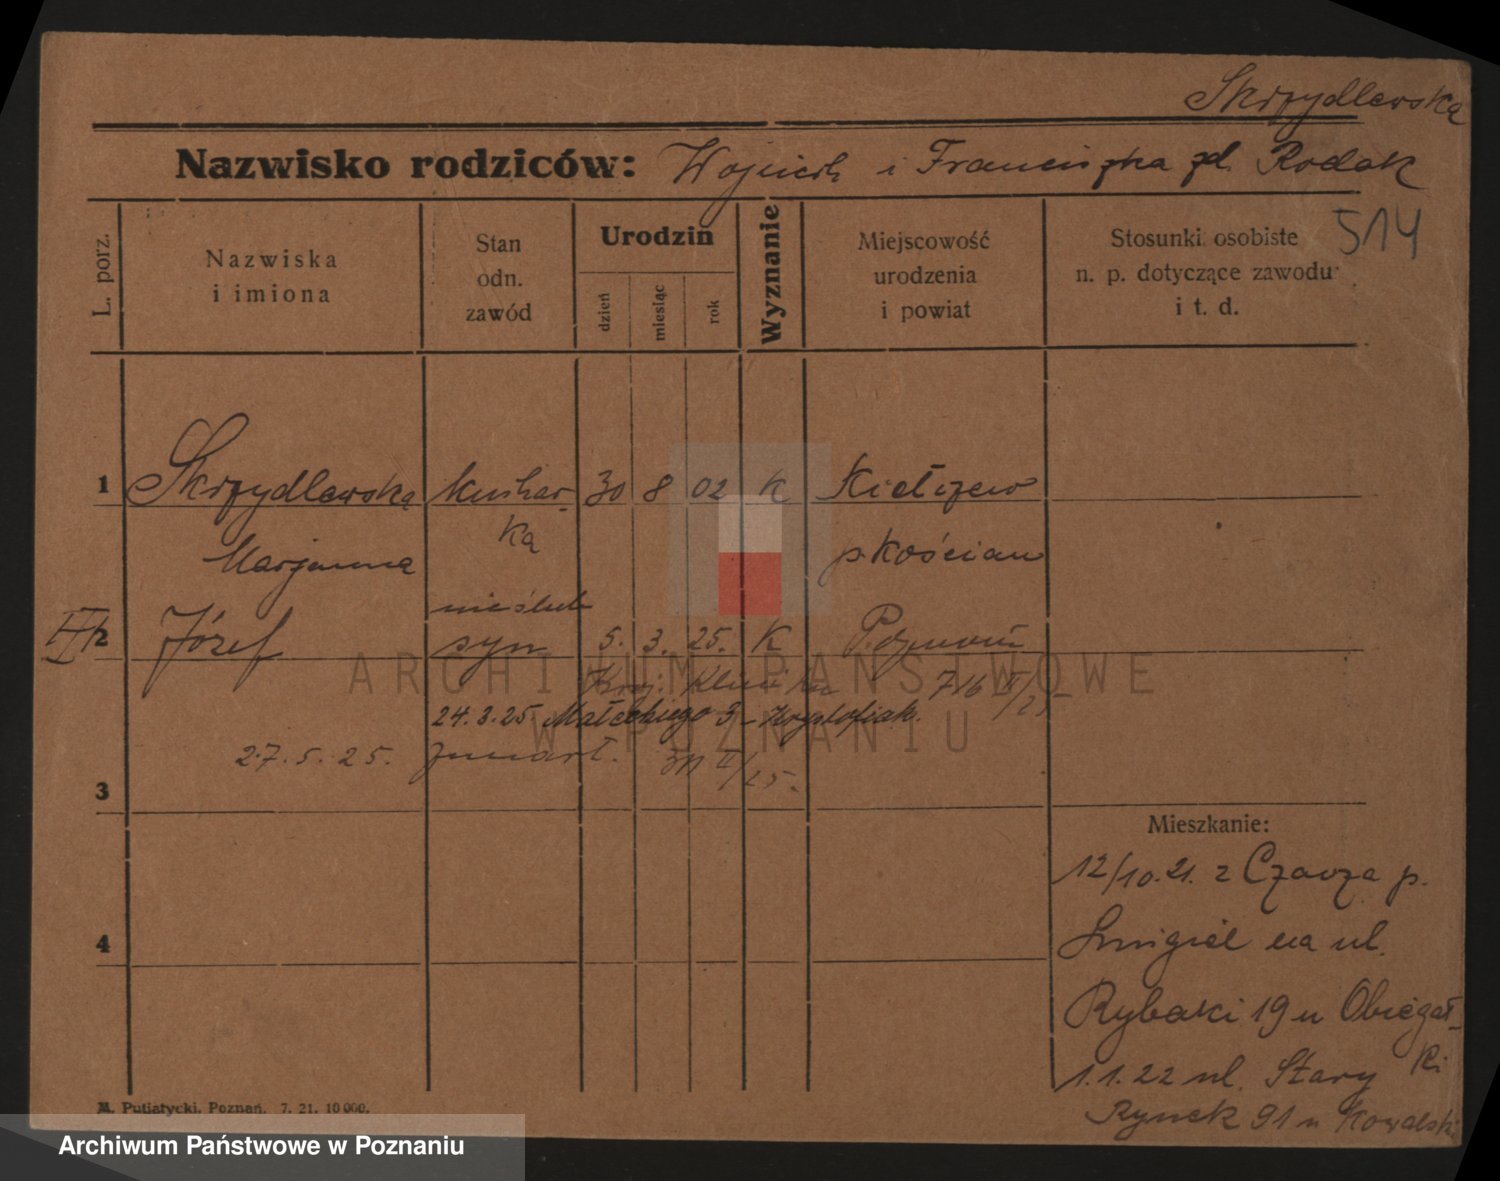 Skrzydlewska
Nazwisko rodziców: Wojciech i Franciszka zd. Rodak
514
L. porz.
Nazwiska
i imiona
Stan
odn.
zawód
Urodzin
dzień
miesiąc
rok
Wyznanie
Miejscowość
urodzenia
i powiat
Stosunki osobiste
n. p. dotyczące zawodu
i t. d.
1 Skrzydlewska kuchar- 30 8 02 K Kiełczew
ka
Marjanna p. Kościan
nieślub
2 Józef syn 5. 3. 25. K Poznań
716 II/25
24.3.25. Małeckiego 3 - Krystofiak.
27.5.25. zmarł. II/25.
3
4
Mieszkanie:
12/10.21. z Czacza p.
Śmigiel na ul.
Rybaki 19 u Obiegał-
ki
1.1.22 ul. Stary
Rynek 91 u Kowalski
M. Putiatycki, Poznań. 7. 21. 10 000.
ARCHIWUM PAŃSTWOWE
W POZNANIU
Archiwum Państwowe w Poznaniu